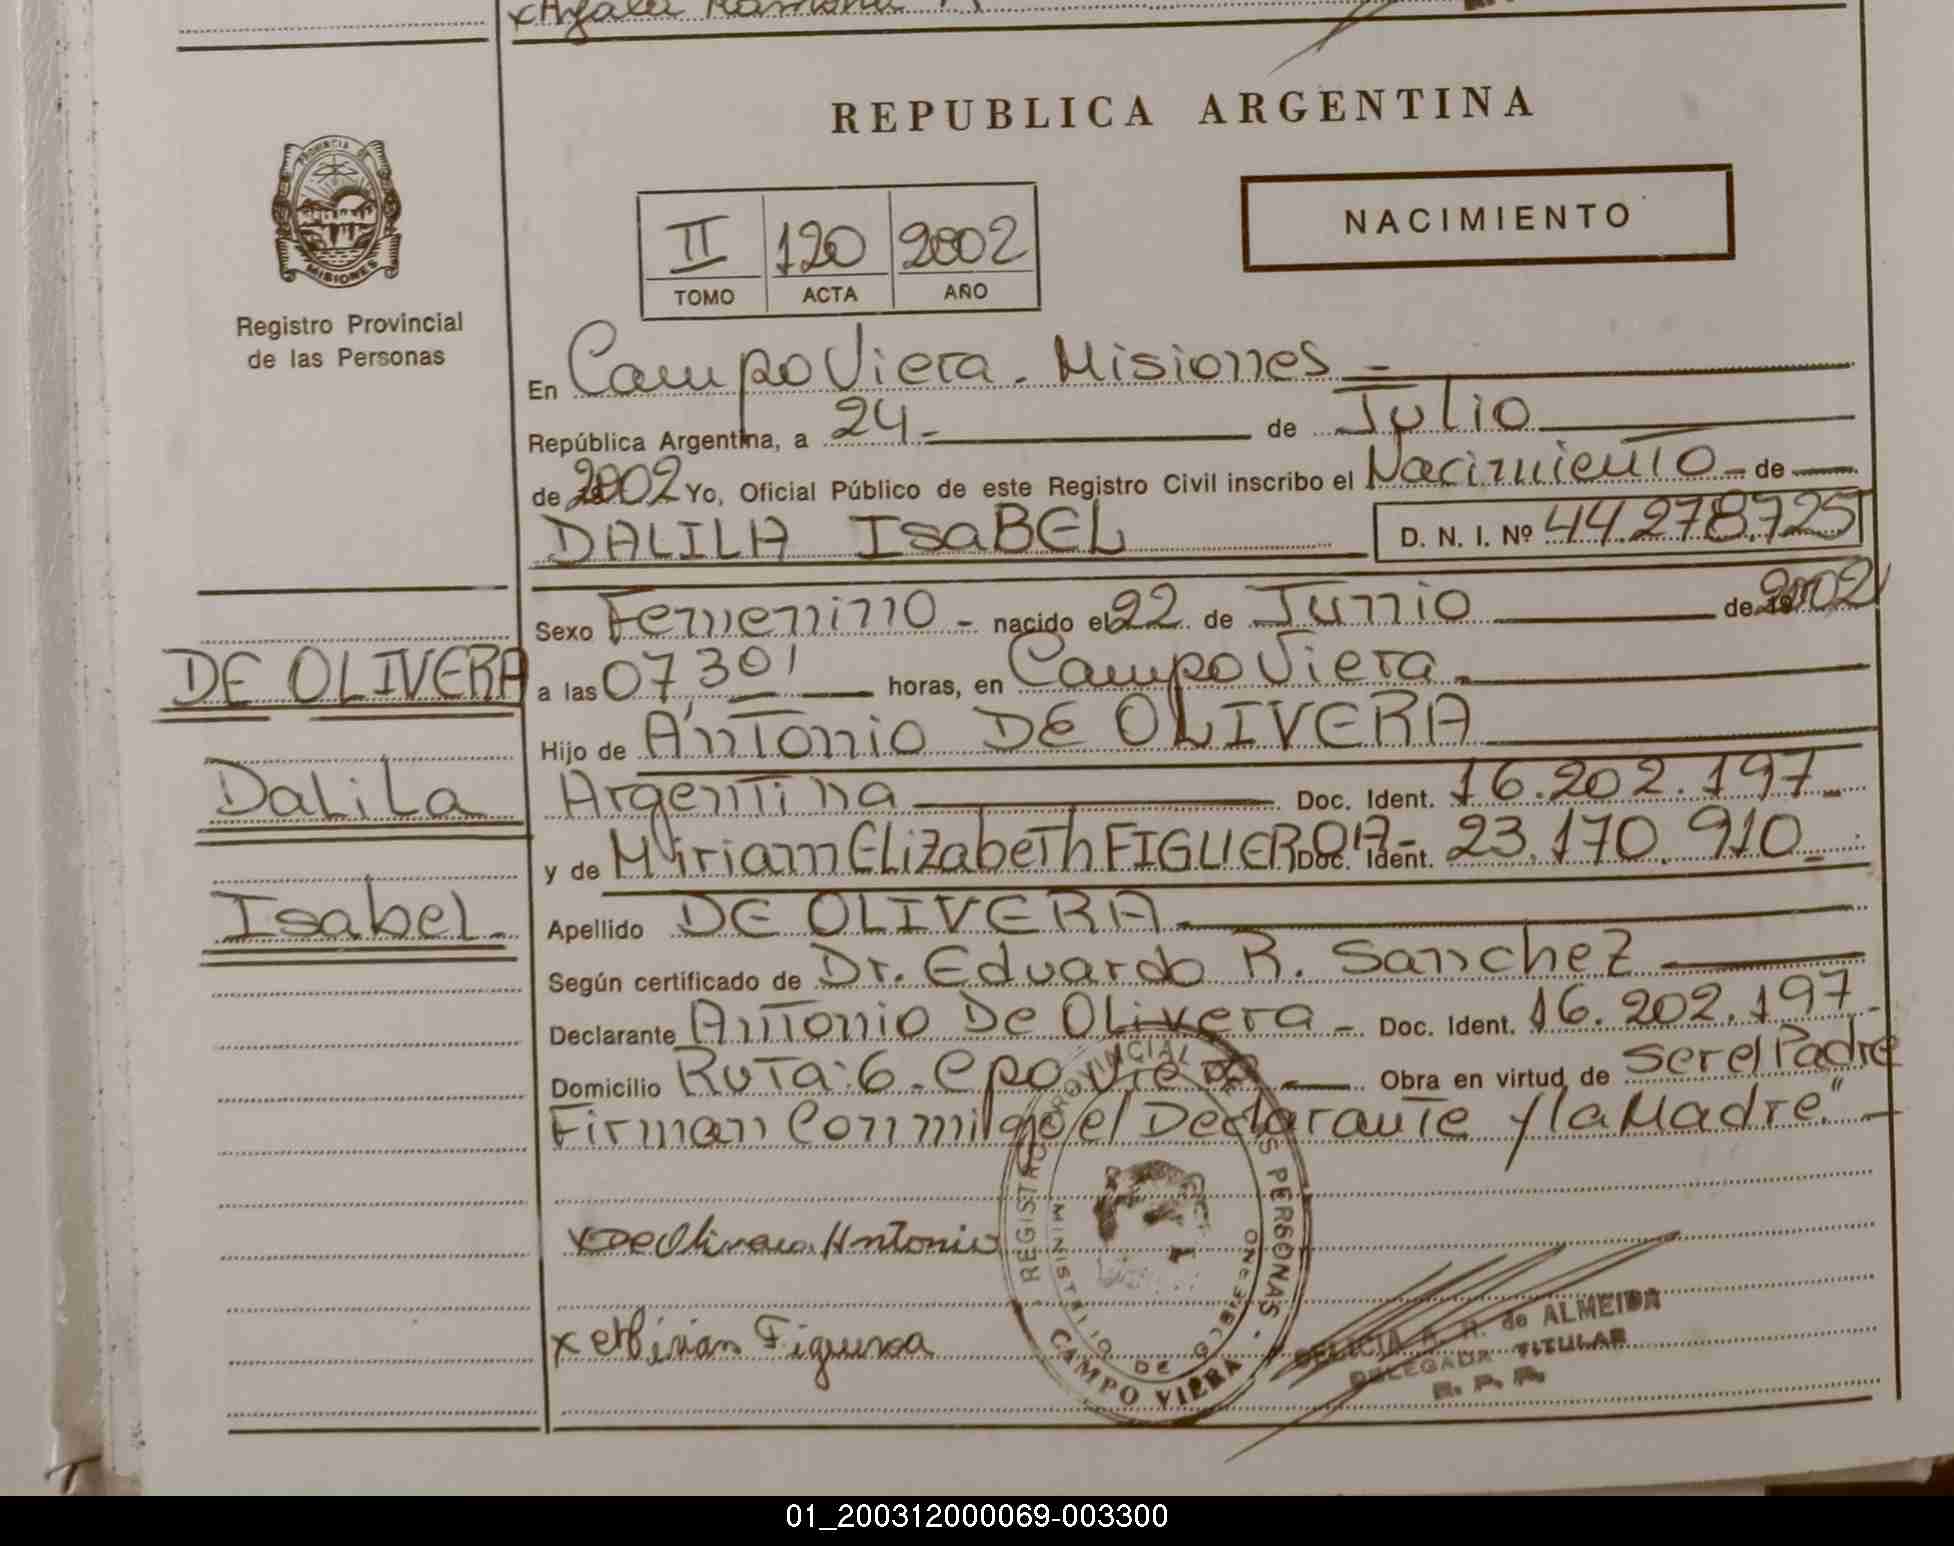 REPUBLICA ARGENTINA
PROVINCIA DE
MISIONES
Registro Provincial
de las Personas
II 120 2002
TOMO ACTA AÑO
NACIMIENTO
En Campo Viera. Misiones
República Argentina, a 24 de Julio
de 2002 Yo, Oficial Público de este Registro Civil inscribo el Nacimiento de
DALILA ISaBEL D. N. I. Nº 44.278.725
Sexo Femenino - nacido el 22 de Junio de 2002
DE OLIVERA
a las 07,30' horas, en Campo Viera
Hijo de Antonio DE OLIVERA
Dalila
Argentina Doc. Ident. 16.202.197
y de Miriam Elizabeth FIGUEROA - Doc. Ident. 23.170.910
Isabel
Apellido DE OLIVERA
Según certificado de Dr. Eduardo R. Sanchez
Declarante Antonio De Olivera - Doc. Ident. 16.202.197
Domicilio Ruta: 6 - Cpo Viera Obra en virtud de ser el Padre
Firman Conmigo el Declarante y la Madre" -
x De Olivera Antonio
x Mirian Figueroa
REGISTRO PROVINCIAL DE LAS PERSONAS
MINISTERIO DE GOBIERNO
CAMPO VIERA
DELICIA R. de ALMEIDA
DELEGADA TITULAR
R. P. P.
01_200312000069-003300